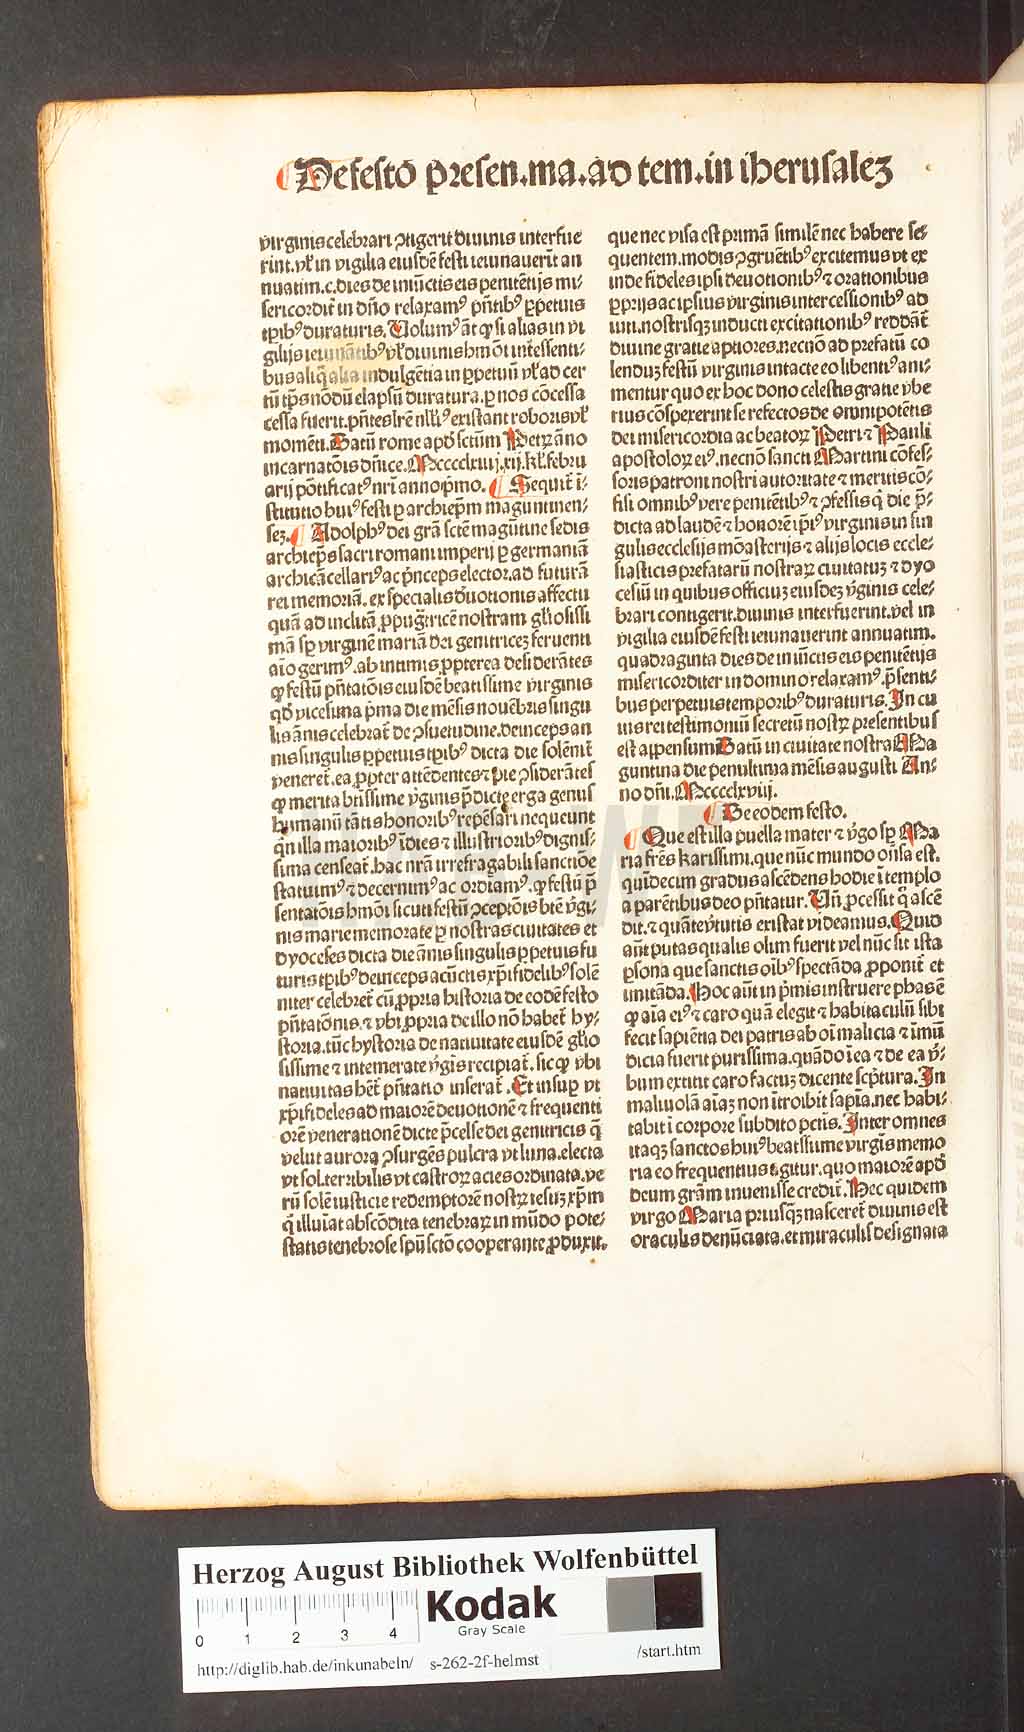 De festo presen.ma.ad tem.in iherusalez
virginis celebrari ↄtigerit diuinis interfue
rint.vl̕ in vigilia eiusdē festi ieiunauerīt an
nuatim.c.dies de iniūctis eis penitētijs mi⸗
sericordit̕ in dn̄o relaxamꝰ p̄ntibꝰ ꝑpetuis
tꝑibꝰ duraturis. Uolumꝰ āt ꝙ si alias in vi
gilijs ieiunātibꝰ vl̕ diuinis hmōi int̕essenti⸗
bus aliq̄ alia indulgētia in ꝑpetuū vl̕ ad cer
tū tp̄s nōdū elapsū duratura.ꝑ nos cōcessa
cessa fuerit.p̄ntes lr̄e nll̕iꝰ existant roboris vl̕
momēti. Datū rome apd̕ sctūm Petrꝝ āno
incarnatōis dn̄ice. Mccccclxiiij.xij.kl̕.febru
arij pōtificatꝰ nr̄i anno p̄mo. Sequit̕ i⸗
stitutio huiꝰ festi ꝑ archiep̄m maguntinen⸗
sez. Adolphꝰ dei grā sctē magūtine sedis
archiep̄s sacri romani imperij ꝑ germaniā
archicācellariꝰ ac p̄nceps elector.ad futurā
rei memoriā.ex specialis d̕uotionis affectu
quā ad inclitā ꝓpug̕tricē nostram gl̕iosissi
mā sꝑ virginē mariā dei genitricez feruenti
aīo gerimꝰ.ab intimis ꝓpterea desiderātes
ꝙ festū p̄ntatōis eiusdē beatissime virginis
qd̕ vicesima p̄ma die mēsis nouēbris singu
lis ānis celebrat̕ de ↄsuetudine.deinceps an
nis singulis ꝑpetuis tꝑibꝰ dicta die solēnit̕
veneret̕.ea ꝓpter attēdentes ⁊ pie ↄsiderātes
ꝙ merita br̄issime v̕ginis p̄dicte erga genus
humanū tātis honoribꝰ repēsari nequeunt
qn̄ illa maioribꝰ īdies ⁊ illustrioribꝰ dignis⸗
sima censeat̕.hac nr̄a irrefragabili sanctiōe
statuimꝰ ⁊ decernimꝰ ac ordiamꝰ.ꝙ festū p̄
sentatōis hmōi sicuti festū ↄceptōis btē v̕gi⸗
nis marie memorate ꝑ nostras ciuitates et
dyoceses dicta die ānis singulis ꝑpetuis fu
turis tꝑibꝰ deinceps a cūctis xp̄ifidelibꝰ solē
niter celebret̕ cū ꝓpria historia de eodē festo
p̄ntatōnis.⁊ vbi ꝓpria de illo nō habet̕ hy⸗
storia.tūc hystoria de natiuitate eiusdē gl̕io
sissime ⁊ intemerate v̕gīs recipiat̕.sic ꝙ vbi
natiuitas hēt̕ p̄ntatio inserat̕. Et insuꝑ vt
xp̄ifideles ad maiorē deuotionē ⁊ frequenti
orē venerationē dicte p̄celse dei genitricis q̄
velut aurora ↄsurgēs pulcra vt luna.electa
vt sol.terribilis vt castroꝝ acies ordinata.ve
rū solē iusticie redemptorē nostrꝝ iesuz xp̄m
q̄ illuīat abscōdita tenebraꝝ in mūdo pote⸗
statis tenebrose spū sctō cooperante ꝓduxit.
que nec visa est primā similē nec habere se⸗
quentem.modis ↄgruētibꝰ excitemus vt ex
inde fideles ipsi deuotionibꝰ ⁊ orationibus
ꝓprijs ac ipsius virginis intercessionibꝰ ad
iuti.nostrisqꝫ inducti excitationibꝰ reddāt̕
diuine gratie aptiores.necnō ad prefatū co
lenduz festū virginis intacte eo libentiꝰ ani⸗
mentur quo ex hoc dono celestis gratie vbe
rius cōspexerint se refectos de omnipotētis
dei misericordia ac beatoꝝ Petri ⁊ Pauli
apostoloꝝ eiꝰ.necnō sancti Martini cōfes⸗
soris patroni nostri autoritate ⁊ meritis cō⸗
fisi omnibꝰ vere penitētibꝰ ⁊ ↄfessis q̄ die p̄⸗
dicta ad laudē ⁊ honorē ip̄iꝰ virginis in sin
gulis ecclesijs mōasterijs ⁊ alijs locis eccle⸗
siasticis prefatarū nostraꝝ ciuitatuz ⁊ dyo
cesiū in quibus officiuz eiusdez v̕ginis cele⸗
brari contigerit.diuinis interfuerint.vel in
vigilia eiusdē festi ieiunauerint annuatim.
quadraginta dies de iniūctis eis penitētijs
misericorditer in domino relaxamꝰ.p̄senti⸗
bus perpetuis temporibꝰ duraturis. In cu
ius rei testimoniū secretū nostrꝝ presentibus
est appensum Datū in ciuitate nostra Ma
guntina die penultima mēsis augusti An⸗
no dn̄i. Mcccclxviij.
De eodem festo.
Que est illa puella mater ⁊ v̕go sꝑ Ma
ria fr̄es karissimi.que nūc mundo on̄sa est.
quīdecim gradus ascēdens hodie ī templo
a parētibus deo p̄ntatur. Un̄ ꝓcessit q̄ ascē
dit.⁊ quāte v̕tutis existat videamus. Quid
aūt putas qualis olim fuerit vel nūc sit ista
ꝑsona que sanctis oībꝰ spectāda ꝓponit̕ et
imitāda. Hoc aūt in p̄mis instruere phas ē
ꝙ aīa eiꝰ ⁊ caro quā elegit ⁊ habitaculū sibi
fecit sapiētia dei patris ab oī malicia ⁊ īmū
dicia fuerit purissima.quādo ī ea ⁊ de ea v̕⸗
bum extitit caro factuz dicente scp̄tura. In
maliuolā aīaz non ītroibit sapīa.nec habi⸗
tabit ī corpore subdito pctīs. Inter omnes
itaqꝫ sanctos huiꝰ beatissime virgīs memo
ria eo frequentius agitur.quo maiorē apd̕
deum grām inuenisse credit̕. Hec quidem
virgo Maria priusqꝫ nasceret̕ diuinis est
oraculis denūciata.et miraculis designata
Herzog August Bibliothek Wolfenbüttel
0 1 2 3 4
Kodak
Gray Scale
http://diglib.hab.de/inkunabeln/ s-262-2f-helmst /start.htm